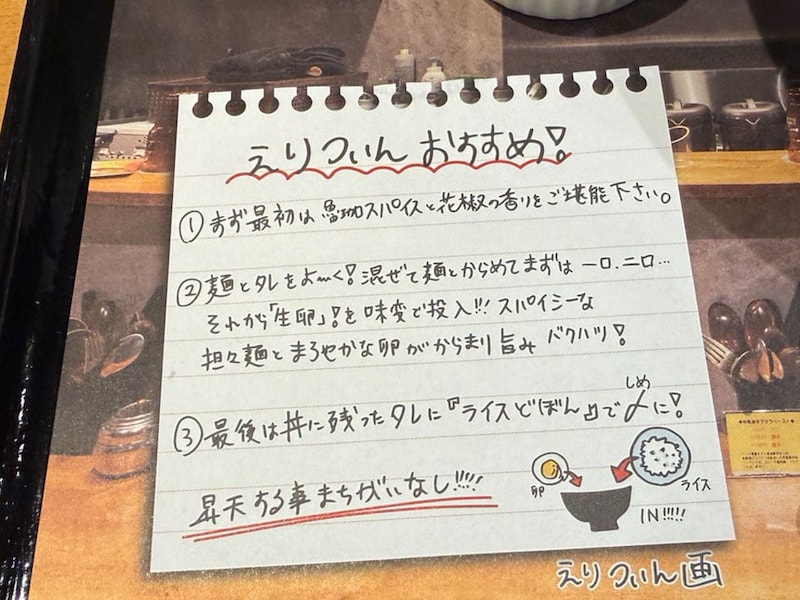 えりつぃんおすすめ!
①まず最初は魯珈スパイスと花椒の香りをご堪能下さい。
②麺とタレをよ〜く!混ぜて麺とからめてまずは一口、二口…
それから「生卵」!を味変で投入!!! スパイシーな
担々麺とまろやかな卵がからまり旨みバクハツ!
しめ
③最後は丼に残ったタレに『ライスどぼん』で〆に!
卵
ライス
昇天する事まちがいなし!!!!
IN!!!!!
えりつぃん画